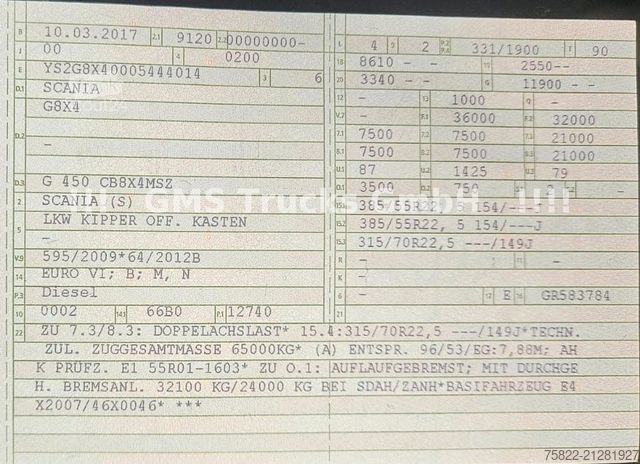 B 10.03.2017 2.1 9120 2.2 00000000-
J 00 4 0200
E YS2G8X40005444014 3 6
D.1 SCANIA
G8X4
D.2 -
D.3 G 450 CB8X4MSZ
2 SCANIA (S)
5 LKW KIPPER OFF. KASTEN
-
V.9 595/2009*64/2012B
14 EURO VI; B; M, N
P.3 Diesel
10 0002 14.1 66B0 P.1 12740
L 4 9 2 P.2 P.4 331/1900 T 90
18 8610 - - 19 2550--
20 3340 - - G 11900 - -
12 - 13 1000 Q -
V.7 - F.1 36000 F.2 32000
7.1 7500 7.2 7500 7.3 21000
8.1 7500 8.2 7500 8.3 21000
U.1 87 U.2 1425 U.3 79
O.1 3500 O.2 750 S.1 2 -
15.1 385/55R22, 5 154/---J
15.2 385/55R22, 5 154/---J
15.3 315/70R22,5 ---/149J
R - 11 -
K -
6 - 17 E 16 GR583784
21
22 ZU 7.3/8.3: DOPPELACHSLAST* 15.4:315/70R22,5 ---/149J*TECHN.
ZUL. ZUGGESAMTMASSE 65000KG* (A) ENTSPR. 96/53/EG:7,88M; AH
K PRÜFZ. E1 55R01-1603* ZU O.1: AUFLAUFGEBREMST; MIT DURCHGE
H. BREMSANL. 32100 KG/24000 KG BEI SDAH/ZANH*BASIFAHRZEUG E4
X2007/46X0046* ***
!!! GMS Trucks GmbH !!!!
75822-21281927